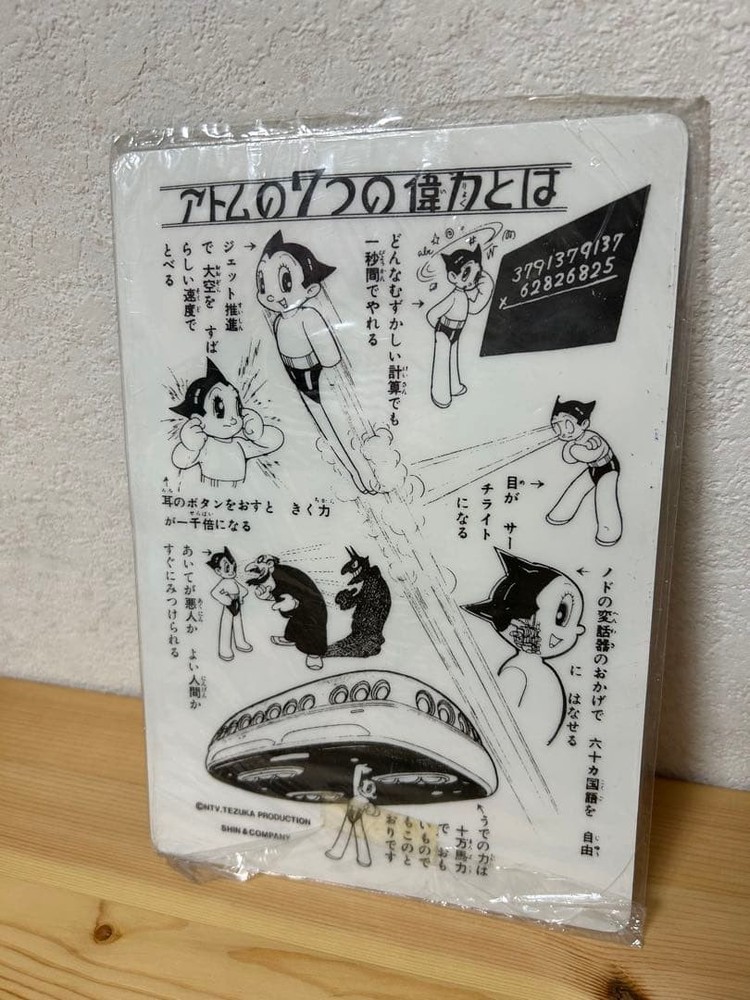 アトムの7つの偉力とは
ジェット推進
で 大空を すば
らしい速度で
とべる
どんなむずかしい計算でも
一秒間でやれる
3791379137
× 62826825
耳のボタンをおすと きく力
が一千倍になる
目が サー
チライト
になる
あいてが悪人か よい人間か
すぐにみつけられる
ノドの変話器のおかげで 六十カ国語を 自由
に はなせる
うでの力は
十万馬力
で おも
いもので
もこのと
おりです
©NTV.TEZUKA PRODUCTION
SHIN & COMPANY